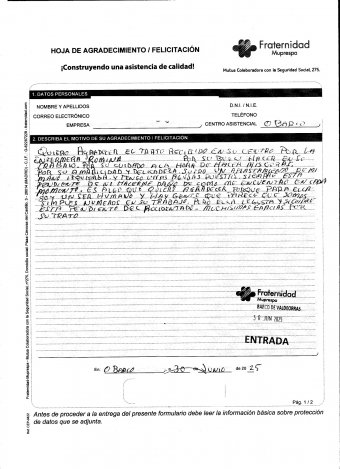 HOJA DE AGRADECIMIENTO / FELICITACIÓN
¡Construyendo una asistencia de calidad!
Fraternidad
Muprespa
Mutua Colaboradora con la Seguridad Social, 275.
1. DATOS PERSONALES
NOMBRE Y APELLIDOS
D.N.I. / N.I.E.
CORREO ELECTRÓNICO
TELÉFONO
EMPRESA
CENTRO ASISTENCIAL O BARCO
2. DESCRIBA EL MOTIVO DE SU AGRADECIMIENTO / FELICITACIÓN
QUIERO AGRADECER EL TRATO RECIBIDO EN SU CENTRO POR LA
ENFERMERA ROMINA POR SU BUEN HACER EN SU
TRABAJO, POR SU CUIDADO A LA HORA DE HACER MIS CURAS,
POR SU AMABILIDAD Y DELICADEZA. SUFRO UN APLASTAMIENTO DE MI
MANO IZQUIERDA Y TENGO VARIAS AGUJAS PUESTAS, SIEMPRE ESTÁ
PENDIENTE DE NO HACERME DAÑO, DE COMO ME ENCUENTRO EN CADA
MOMENTO. ES ALGO QUE QUIERO AGRADECER PORQUE PARA ELLA
SOY UN SER HUMANO Y HAY GENTE QUE PARECE QUE SOMOS
SIMPLES NUMEROS EN SU TRABAJO, PERO ELLA LE GUSTA Y SIEMPRE
ESTÁ PENDIENTE DEL ACCIDENTADO. MUCHISIMAS GRACIAS POR
SU TRATO
Fraternidad
Muprespa
BARCO DE VALDEORRAS
30 JUN 2025
ENTRADA
En O BARCO 30 JUNIO de 20 25
Pág. 1 / 2
Antes de proceder a la entrega del presente formulario debe leer la información básica sobre protección
de datos que se adjunta.